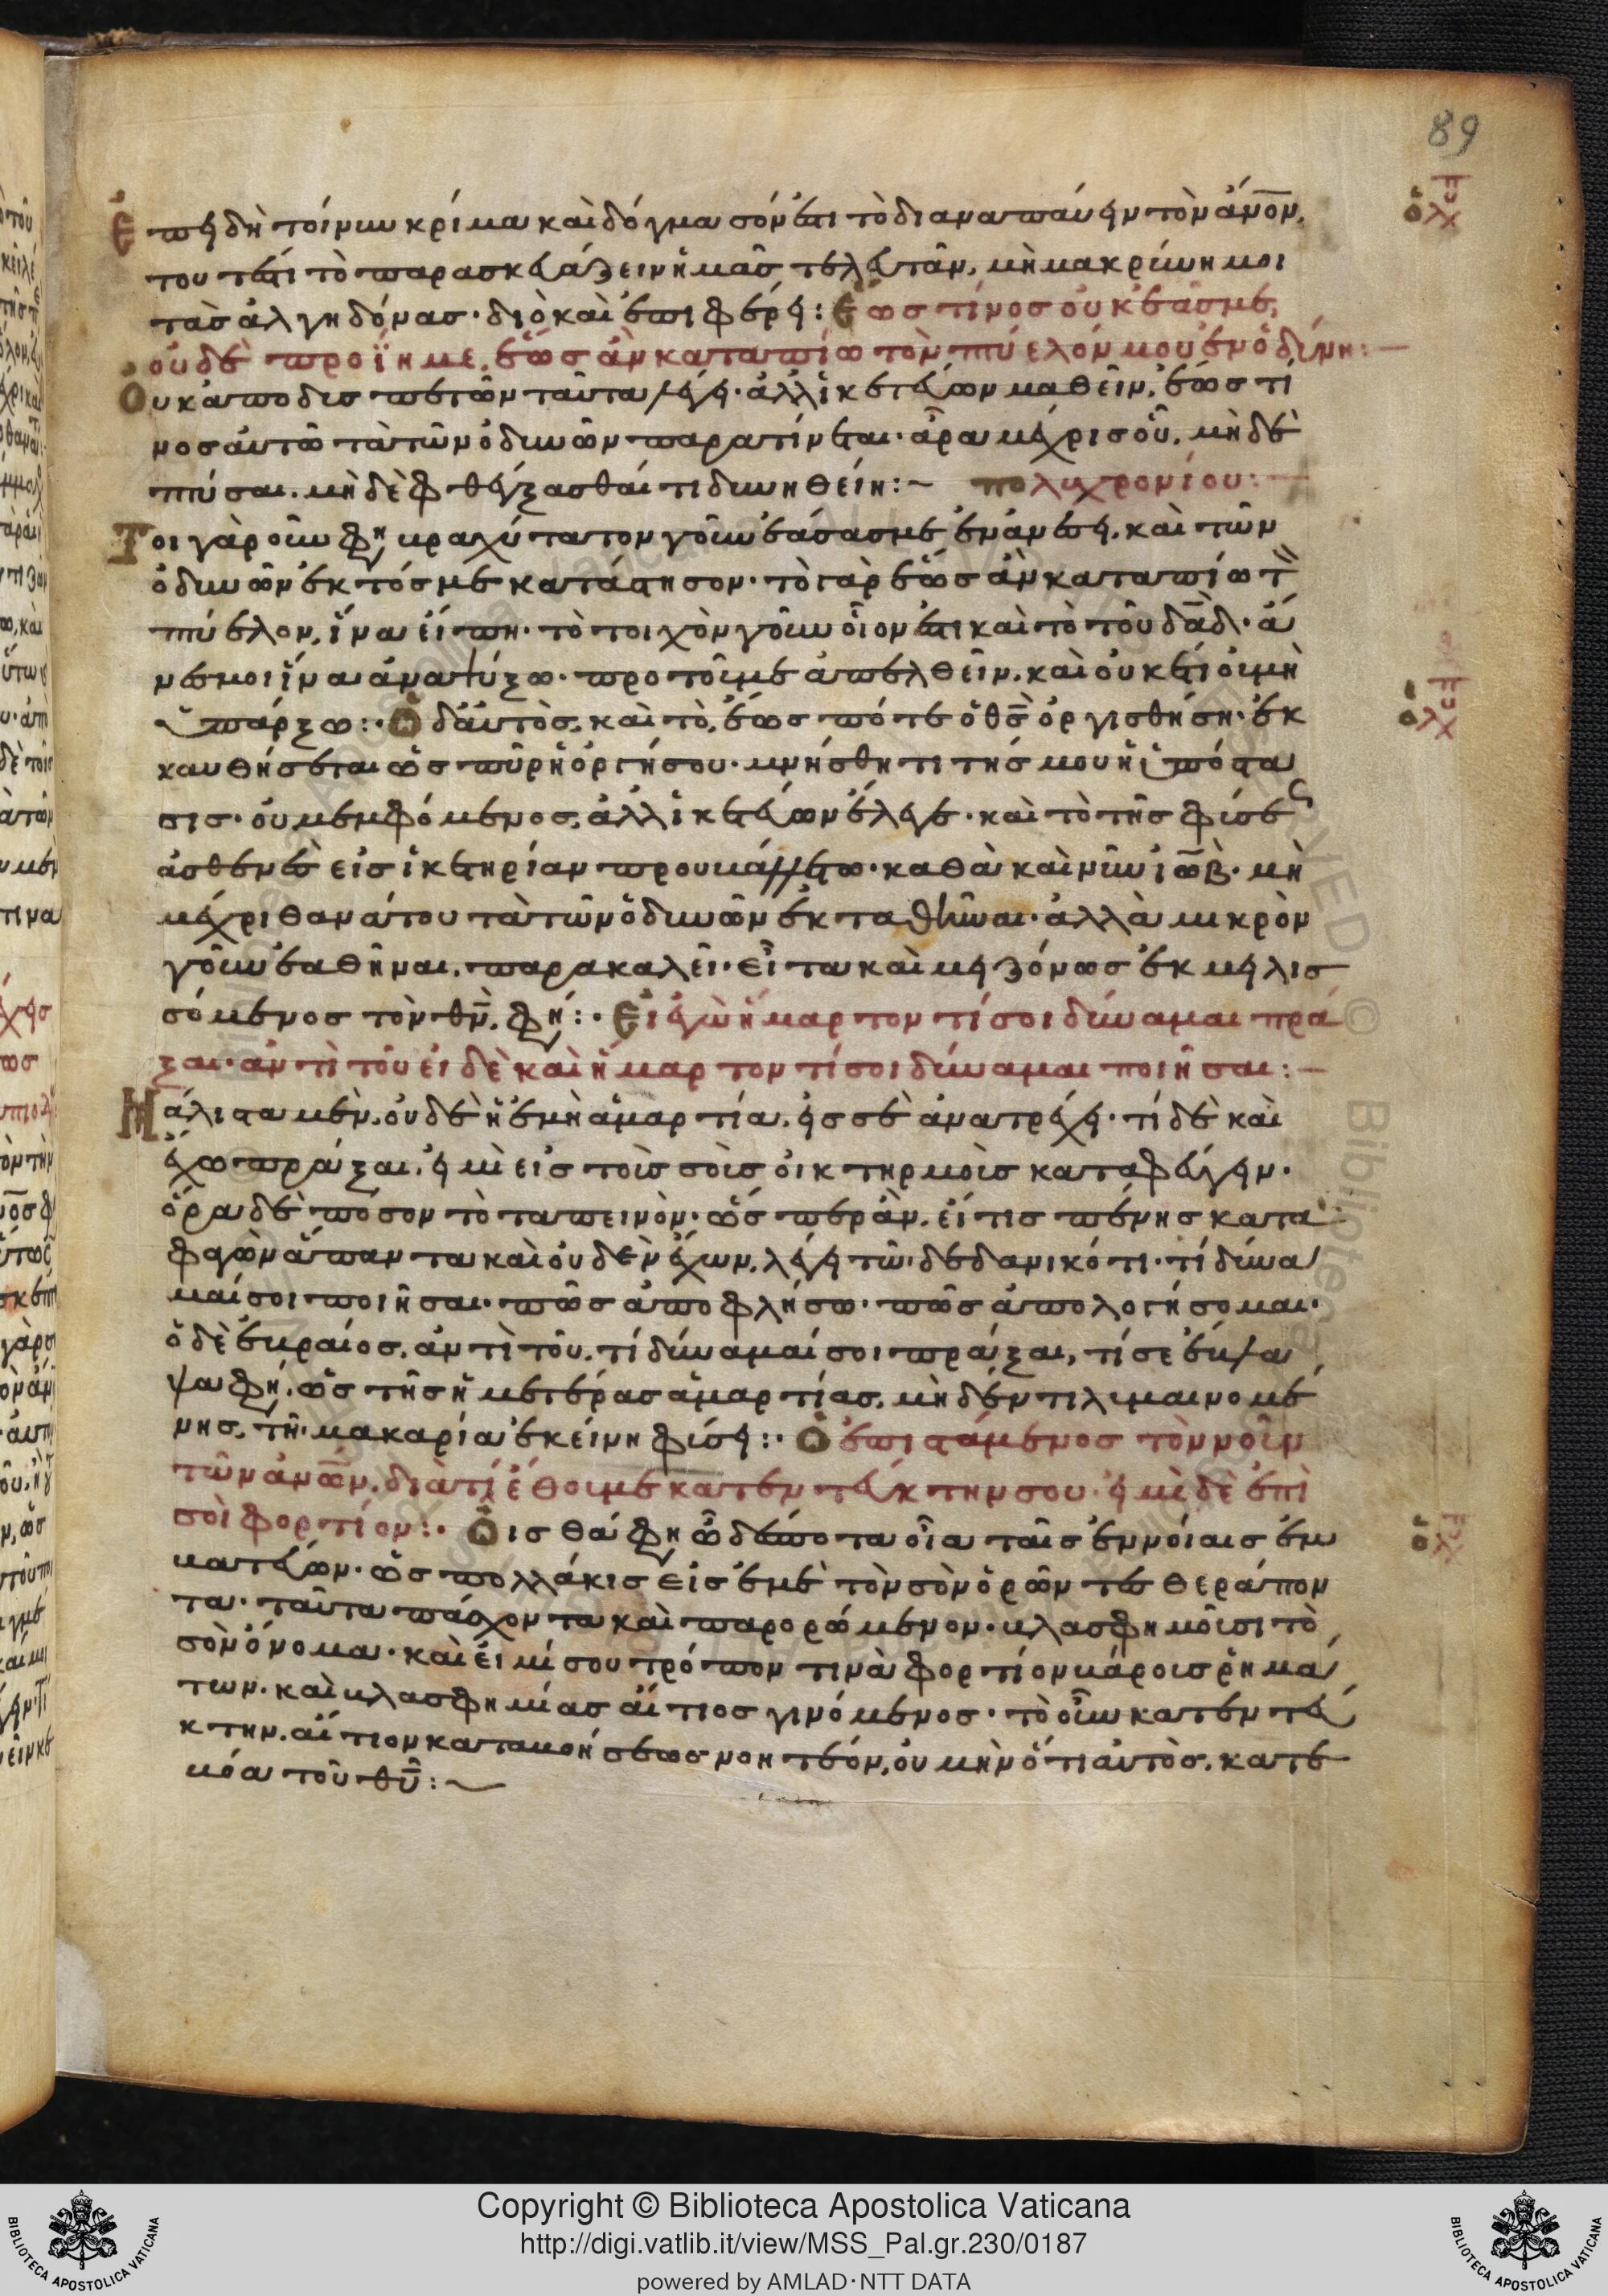 89
Ἐπειδὴ τοίνυν κρίμα καὶ δόγμα σόν ἐστι τὸ διαναπαύειν τὸν ἄνον,
τουτέστι τὸ παρασκευάζειν ἡμᾶς τελευτᾶν, μὴ μακρύνῃ μοι
τὰς ἀλγηδόνας· διὸ καὶ ἐπιφέρει: Ἕως τίνος οὐκ ἐᾶς με,
οὐδὲ προΐῃ με, ἕως ἂν καταπίω τὸν πτύελόν μου ἐν ὀδύνῃ:
Οὐκ ἀποδυσπετῶν ταῦτα λέγει· ἀλλ' ἱκετεύων μαθεῖν, ἕως τί
νος αὐτῶ τὰ τῶν ὀδυνῶν παρατίνεται· ἆρα μέχρις οὗ, μηδὲ
πτύσαι, μὴ δὲ φθέγξασθαί τι δυνηθείη:~ πολυχρονίου:
Τοιγαροῦν φη βραχύτατον γοῦν ἐάσας με ἐν ἀνέσει, καὶ τῶν
ὀδυνῶν ἐκτός με κατάστησον· τὸ γὰρ ἕως ἂν καταπίω τ
πτύελον, ἵνα εἴπη· τὸ τυχὸν γοῦν οἷον ἐστι καὶ τὸ τοῦ δαδ· ἄ
νες μοι ἵνα ἀναψύξω· πρὸ τοῦ με ἀπελθεῖν, καὶ οὐκέτι οὐ μὴ
ὑπάρξω: Ὁ δ' αὐτὸς, καὶ τὸ, ἕως πότε ὁ θς ὀργισθήση· ἐκ
καυθήσεται ὡς πῦρ ἡ ὀργή σου· μνήσθητι τίς μου ἡ ὑπόστα
σις· οὐ μεμφόμενος, ἀλλ' ἱκετεύων ἔλεγε· καὶ τὸ τῆς φύσεως
ἀσθενὲς εἰς ἱκετηρίαν προυβάλλετο· καθὰ καὶ νῦν ἰωβ· μὴ
μέχρι θανάτου τὰ τῶν ὀδυνῶν ἐκταθῆναι· ἀλλὰ μικρὸν
γοῦν ἐαθῆναι, παρακαλεῖ· εἶτα καὶ μειζόνως ἐκμειλισ
σόμενος τὸν θν, φη: Εἰ ἐγὼ ἥμαρτον τί σοι δύναμαι πρᾶ
ξαι· ἀντὶ τοῦ εἰ δὲ καὶ ἥμαρτον τί σοι δύναμαι ποιῆσαι:
Μάλιστα μὲν, οὐδὲ ἡ ἐμὴ ἁμαρτία, εἰς σὲ ἀνατρέχει· τί δὲ καὶ
ἔχω πρᾶξαι, εἰ μὴ εἰς τοὺς σοὺς οἰκτηρμοὺς καταφεύγειν·
ὅρα δὲ πόσον τὸ ταπεινὸν· ὥσπερ ἂν, εἴ τις πένης κατα
φαγὼν ἅπαντα καὶ οὐδὲν ἔχων, λέγει τῶ δεδανικότι· τί δύνα
μαί σοι ποιῆσαι· πῶς ἀποφλήσω· πῶς ἀπολογήσομαι·
ὁ δὲ ἑβραῖος, ἀντὶ τοῦ, τί δύναμαί σοι πρᾶξαι, τί σε ἔβλα
ψα φη, ὡς τῆς ἡμετέρας ἁμαρτίας, μηδέν τι λυμαινομέ
νης, τῆ μακαρία ἐκείνη φύσει: Ὁ ἐπιστάμενος τὸν νοῦν
τῶν ἀνων, διατί ἔθου με κατεντεύκτην σου· εἰμὶ δὲ ἐπὶ
σοὶ φορτίον: Οἶσθά φη ὦ δέσποτα οἷα ταῖς ἐννοίαις ἐμ
βατεύων· ὡς πολλάκις εἰς ἐμὲ τὸν σὸν ὁρῶντες θεράπον
τα· ταῦτα πάσχοντα καὶ παρορώμενον· βλασφημοῦσι τὸ
σὸν ὄνομα· καὶ εἰμί σου τρόπον τινὰ φορτίον βάρους ῥημά
των· καὶ βλασφημίας αἴτιος γινόμενος· τὸ οὖν κατεντεύ
κτην, αἴτιον καταβοήσεως νοητέον, οὐ μὴν ὅτι αὐτὸς, κατε
βόα τοῦ θυ:~
Copyright © Biblioteca Apostolica Vaticana
http://digi.vatlib.it/view/MSS_Pal.gr.230/0187
powered by AMLAD·NTT DATA